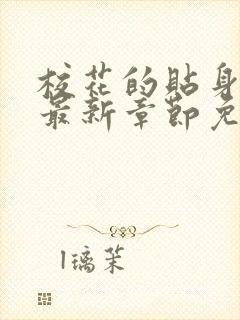 校花的贴身
最新章节免
1璃茉